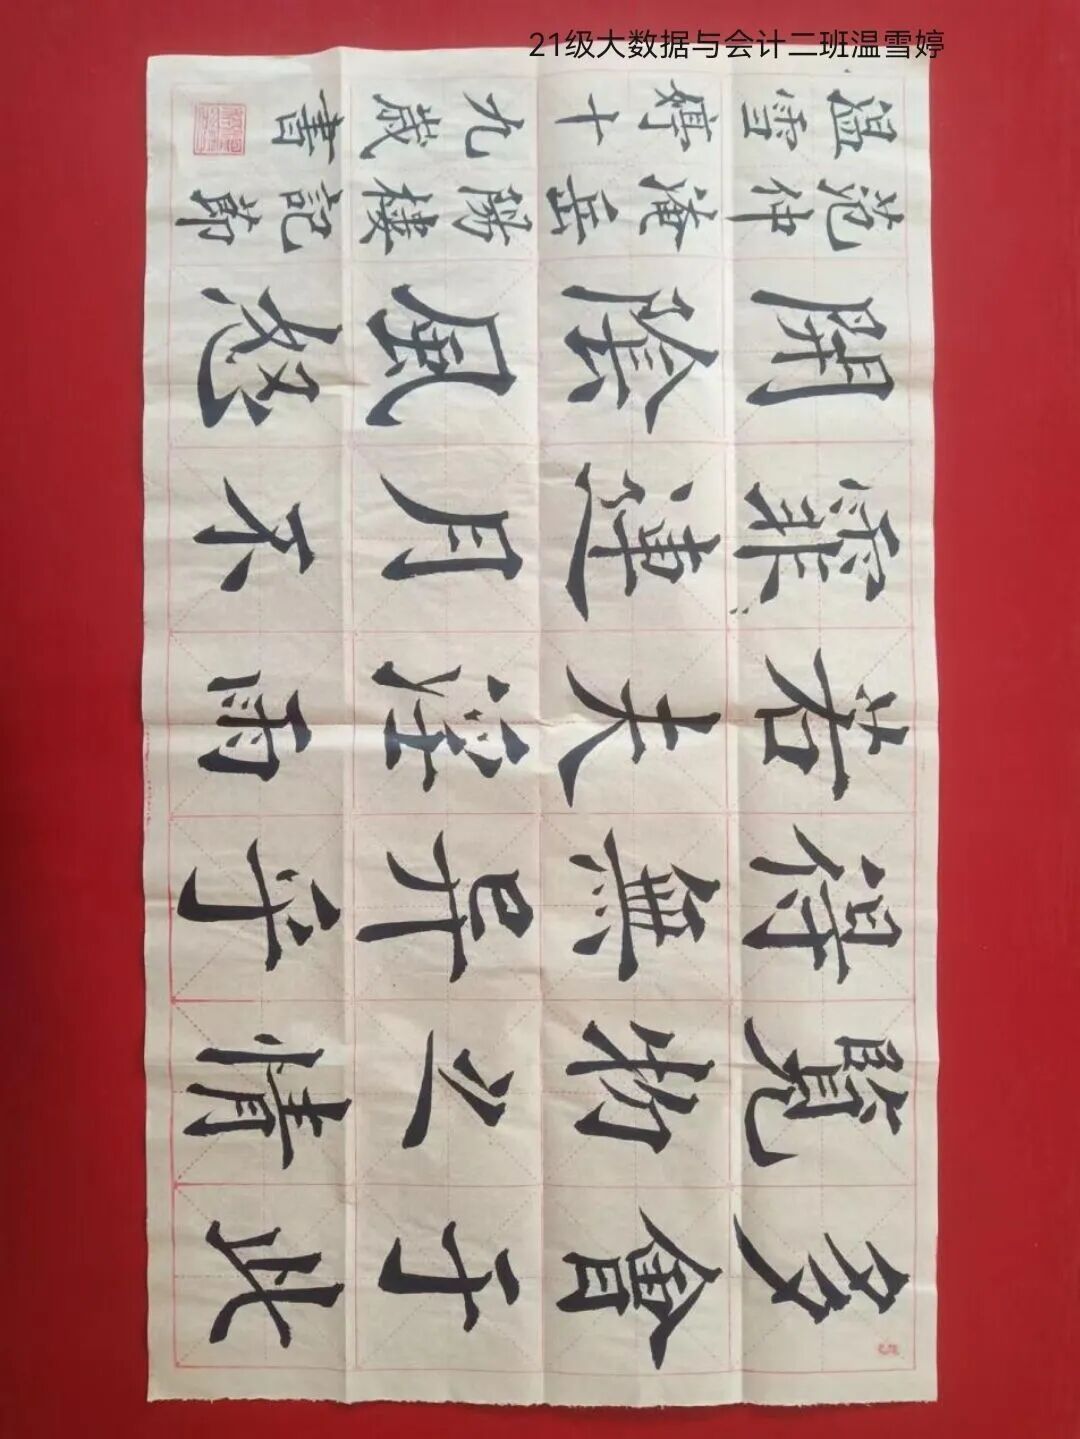 21级大数据与会计二班温雪婷
多會于此
覽物之情
得無异乎
若夫淫雨
霏連月不
開陰風怒
范仲淹岳陽樓記節
溫雪婷十九歲書